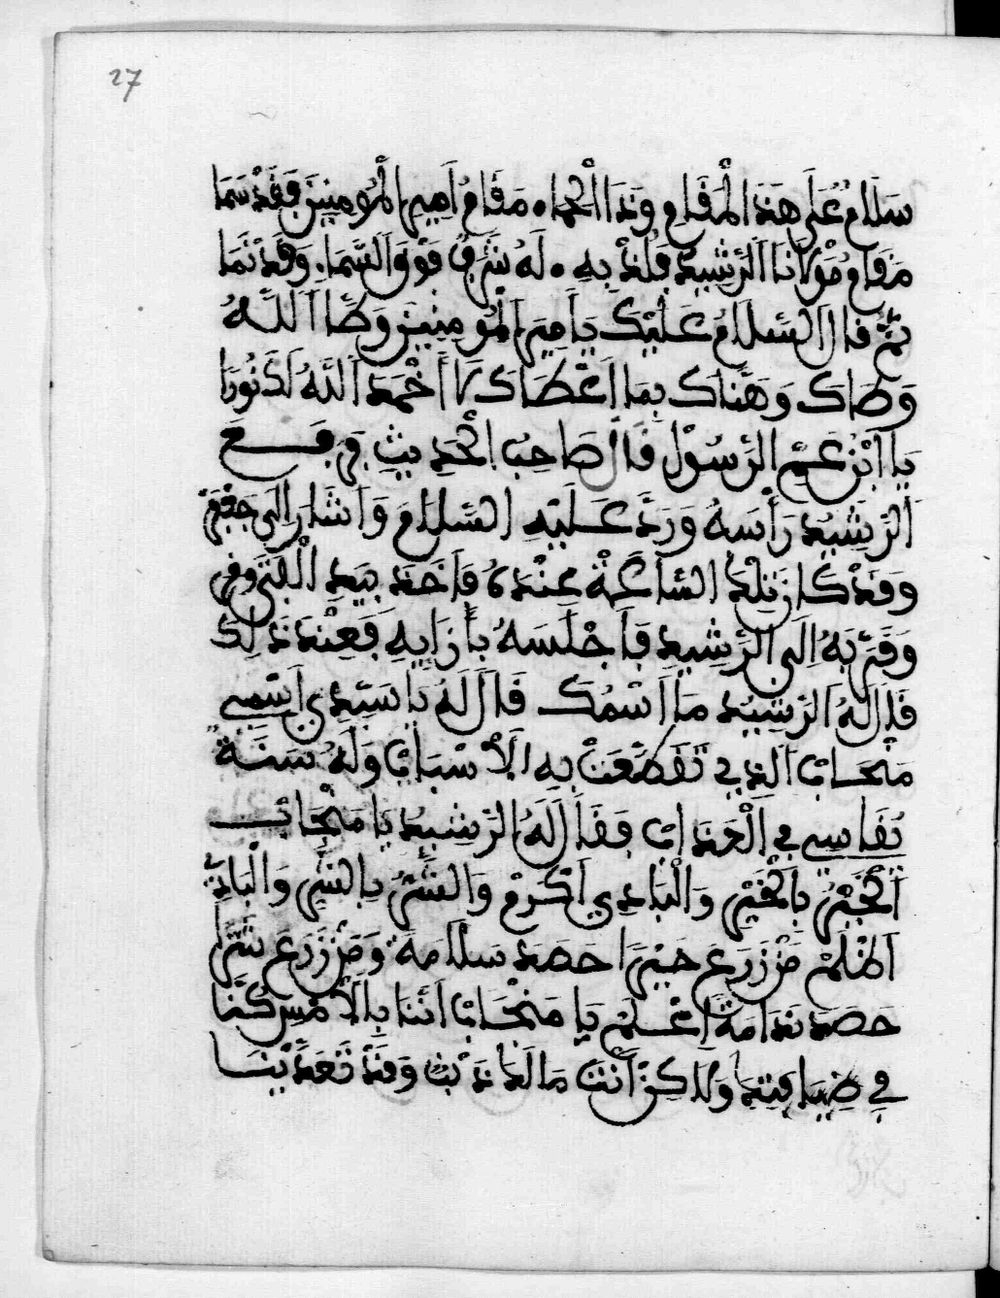 27
سَلَامٌ عَلَى هَذَا الْمَقَامِ وَذَا الْحِمَا • مَقَامُ أَمِيرِ الْمُومِنِينَ فَقَدْ سَمَا
مَقَامُ مَوْلَانَا الرَّشِيدِ فَلُذْ بِهِ • لَهُ شَرَفٌ فَوْقَ السَّمَاءِ وَقَدْ نَمَا
ثُمَّ قَالَ السَّلَامُ عَلَيْكَ يَا أَمِيرَ الْمُومِنِينَ وَطَّا اللَّهُ
وَطَاكَ وَهَنَّاكَ بِمَا اَعْطَاكَ لَا أَخْمَدَ اللَّهُ لَكَ نُورًا
يَا ابْنَ عَمِّ الرَّسُولِ قَالَ صَاحِبُ الْحَدِيثِ فَرَفَعَ
الرَّشِيدُ رَأْسَهُ وَرَدَّ عَلَيْهِ السَّلَامَ وَاَشَارَ اِلَى جَعْفَرٍ
وَقَدْ كَانَ تِلْكَ السَّاعَةَ عِنْدَهُ فَأَخَذَ بِيَدِ الْفَتَى وفر
وَقَرَّبَهُ اِلَى الرَّشِيدِ فَأَجْلَسَهُ بِأَزَايِهِ فَعِنْدَ ذَلِكَ
قَالَ لَهُ الرَّشِيدُ مَا اَسْمُكَ قَالَ لَهُ يَا سَيِّدِي اَسْمِي
مَنْجَابُ الَّذِي تَقَطَّعَتْ بِهِ الْأَسْبَابُ وَلَهُ سَنَةٌ
يُقَاسِي فِي الْعَذَابِ فَقَالَ لَهُ الرَّشِيدُ يَا مَنْجَابُ
اَلْخَيْرُ بِالْخَيْرِ وَالْبَادِي أَكْرَمُ وَالشَّرُّ بِالشَّرِّ وَالْبَادِيُ
اَظْلَمُ مَنْ زَرَعَ خَيْرًا حَصَدَ سَلَامَةً وَمَنْ زَرَعَ شَرًّا
حَصَدَ نَدَامَةً اَعْلَمْ يَا مَنْجَابُ اَنَّنَا بِالْأَمْسِ كُنَّا
فِي ضِيَافَتِنَا وَلَاكِنْ أَنْتَ مَالَنَا ذَنْبٌ وَقَدْ تَعَدَّيْنَا